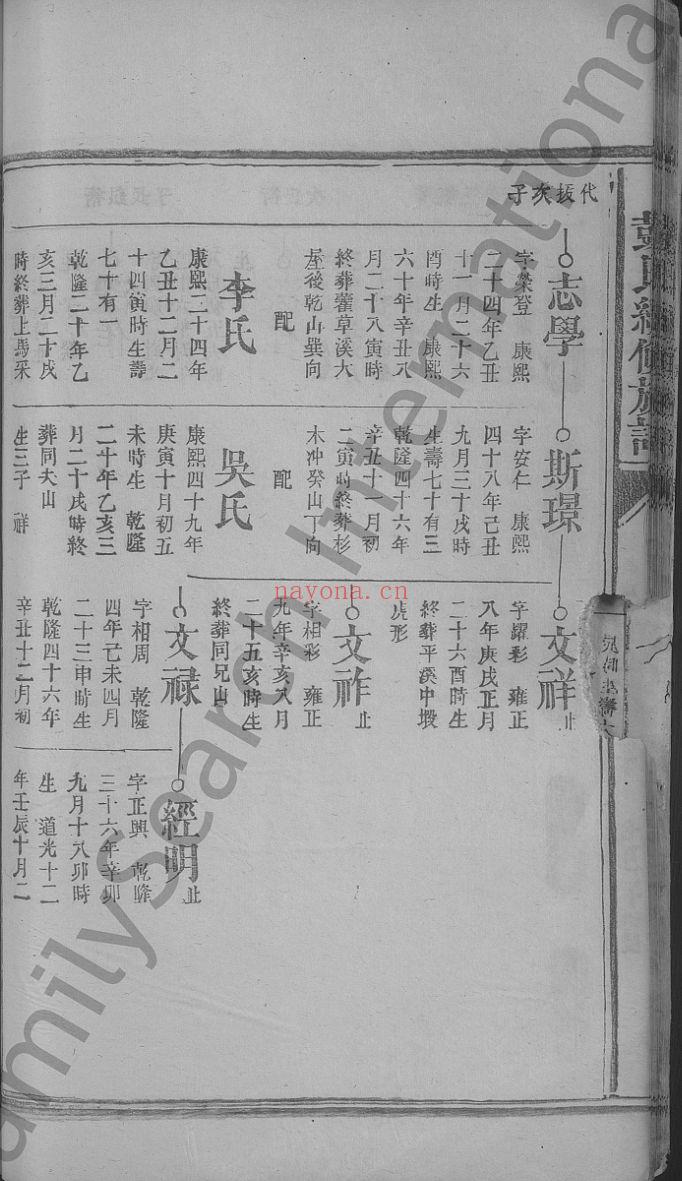 彭氏續修族譜
代扳次子
志學
字榮登 康熙
二十四年乙丑
十一月二十六
酉時生 康熙
六十年辛丑八
月二十八寅時
終葬藿草溪大
屋後乾山巽向
配
李氏
康熙二十四年
乙丑十二月二
十四寅時生壽
七十有一
乾隆二十年乙
亥三月二十戌
時終葬上馬采
斯璟
字安仁 康熙
四十八年己丑
九月三十戌時
生壽七十有三
乾隆四十六年
辛丑十一月初
二寅時終葬杉
木冲癸山丁向
配
吳氏
康熙四十九年
庚寅十月初五
未時生 乾隆
二十年乙亥三
月二十戌時終
葬同夫山
生三子 祥
文祥止
字躍彩 雍正
八年庚戌正月
二十六酉時生
終葬平溪中塅
虎形
文祚止
字相彩 雍正
九年辛亥八月
二十五亥時生
終葬同兄山
文祿
字相周 乾隆
四年己未四月
二十三申時生
乾隆四十六年
辛丑十二月初
經明止
字正興 乾隆
三十六年辛卯
九月十八卯時
生 道光十二
年壬辰十月二
nayona.cn
FamilySearch International